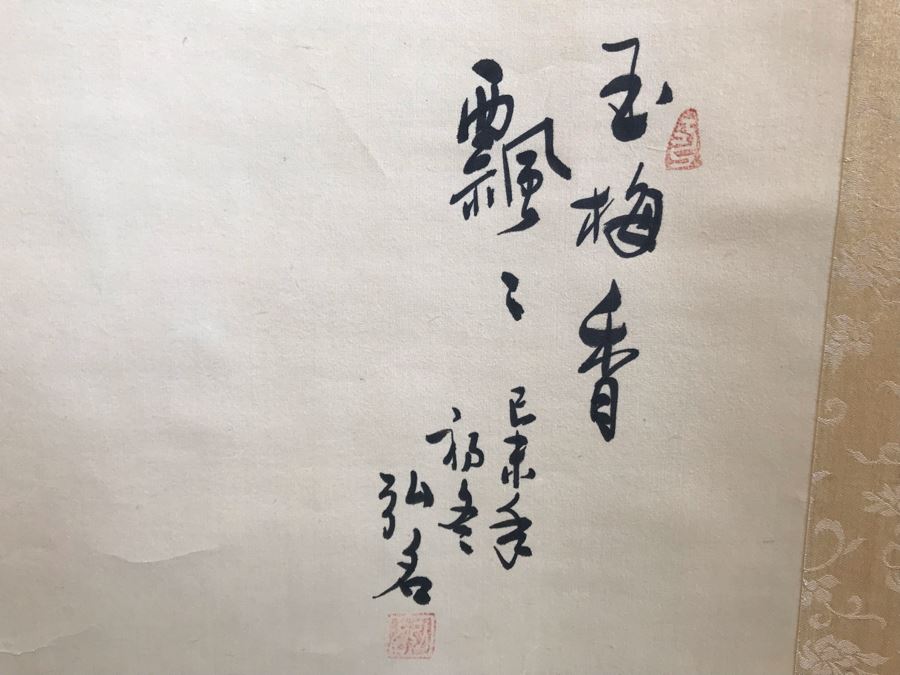 玉梅香
飄〻
己未年
初冬
弘名